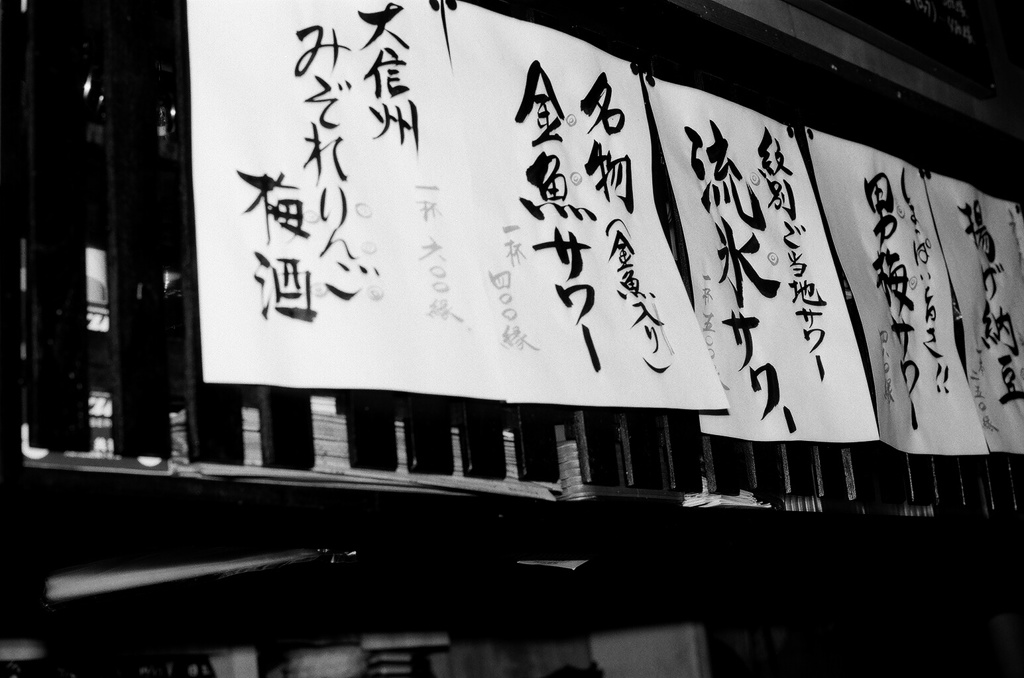 大信州
みぞれりんご
梅酒
一杯 六〇〇縁
名物(金魚入り)
金魚サワー
一杯 四〇〇縁
紋別ご当地サワー
流氷サワー
一杯 五〇〇
しょっぱいよるさ!!
男梅サワー
四〇〇縁
揚げ納豆